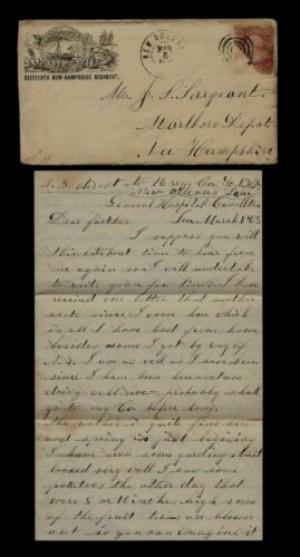 SIXTEENTH NEW-HAMPSHIRE REGIMENT.
NEW ORLEANS
MAR
5
Mr J. S. Sargeant.
Marlboro Depot
New Hampshire
N. B. direct to 16 reg. Co. N.H.
New Orleans Lou.
General Hospital Carrollton
Dear farther Lou March 1 63
I suppose you will
think about time to hear from
me again so I will undertake
to write you a few lines. I have
received one letter that mother
wrote since I come here which
is all I have had from home
besides some I got by way of
N. Y. I am as well as I have been
since I have been here what am
doing well now probably shall
go to my Co. before long.
The wether is quite fine here
and spring is just begining
I have seen some garding stuff
looked very well I saw some
potatoes the other day that
were 8 or 10 inches high some
of the fruit trees are blown
out so you can imagine it